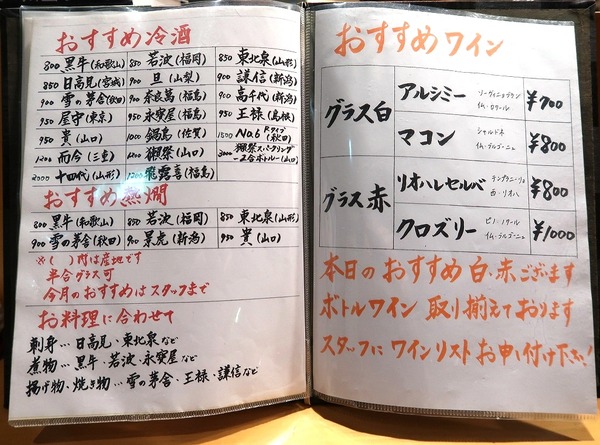 おすすめ冷酒
800 黒牛(和歌山) 850 若波(福岡) 850 東北泉(山形)
850 日高見(宮城) 900 旦(山梨) 900 謙信(新潟)
900 雪の茅舎(秋田) 900 奈良萬(福島) 900 高千代(新潟)
950 屋守(東京) 950 永寶屋(福島) 950 王禄(島根)
950 貴(山口) 1000 鍋島(佐賀) 1500 No.6 Rタイプ(秋田)
1200 而今(三重) 1200 獺祭(山口) 3000 獺祭スパークリング 二合ボトル(山口)
2000 十四代(山形) 1200 飛露喜(福島)
おすすめ熱燗
800 黒牛(和歌山) 850 若波(福岡) 850 東北泉(山形)
900 雪の茅舎(秋田) 900 景虎(新潟) 950 貴(山口)
※( )内は産地です
半合グラス可
今月のおすすめはスタッフまで
お料理に合わせて
刺身…日高見・東北泉など
煮物…黒牛・若波・永寶屋など
揚げ物・焼き物…雪の茅舎・王禄・謙信など
おすすめワイン
グラス白
アルシミー ソーヴィニョンブラン ¥700
仏・ロワール
マコン シャルドネ ¥800
仏・ブルゴーニュ
グラス赤
リオハレセルバ テンプラニーリョ ¥800
西・リオハ
クロズリー ピノ・ノワール ¥1000
仏・ブルゴーニュ
本日のおすすめ白・赤ございます
ボトルワイン取り揃えております
スタッフにワインリストお申し付け下さい!